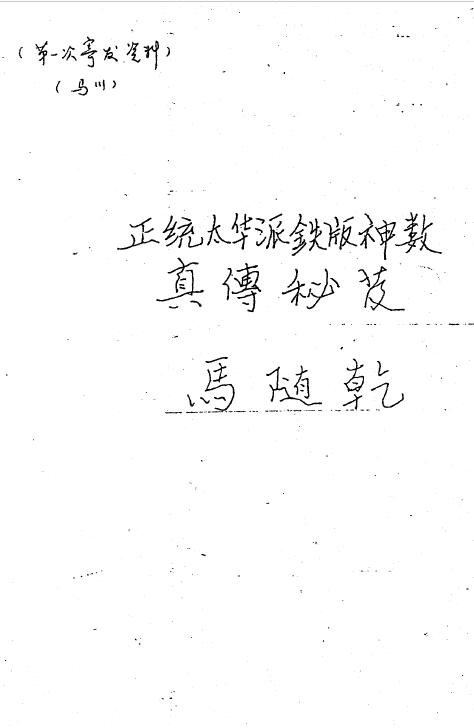 （第一次寄发资料）
（马川）
正统太华派鉄版神数
真傳秘芨
馬随乾